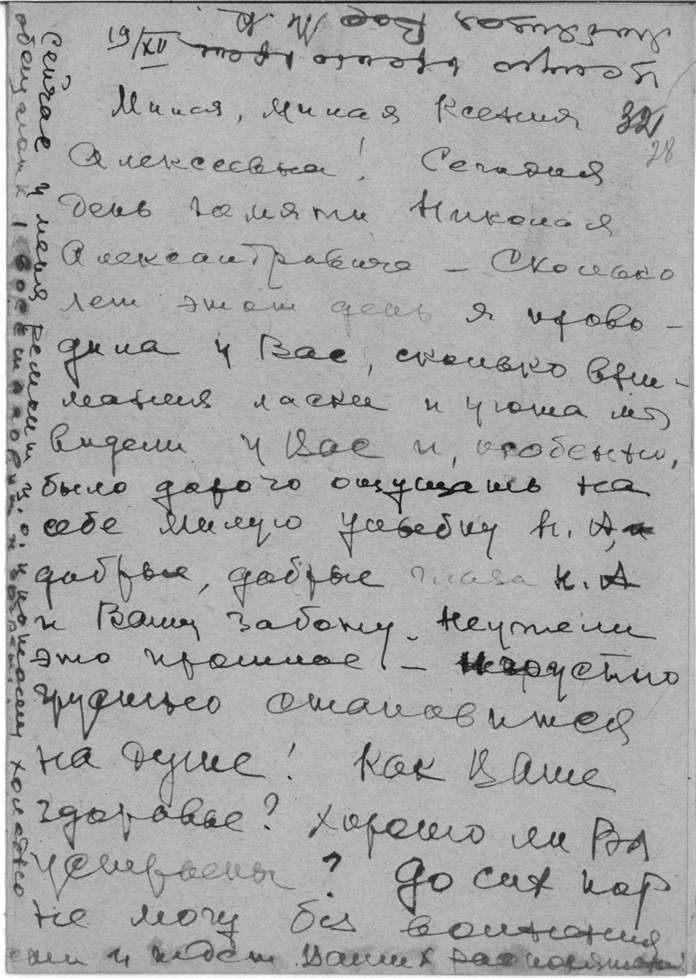 19/XII
Милая, милая Ксения
32
28
Алексеевна! Сегодня
день памяти Николая
Александровича – Сколько
лет этот день я прово-
дила у Вас, сколько вни-
мания ласки и уюта мы
видели у Вас и, особенно,
было дорого ощущать на
себе милую улыбку Н. А.,
добрые, добрые глаза Н. А
и Вашу заботу. Неужели
это прошлое! – грустно
грустно становится
на душе! Как Ваше
здоровье? Хорошо ли Вы
устроены? До сих пор
не могу без волнения
Ваших
Сейчас у меня ремонт и потому холодно
Любящая Вас М. К.